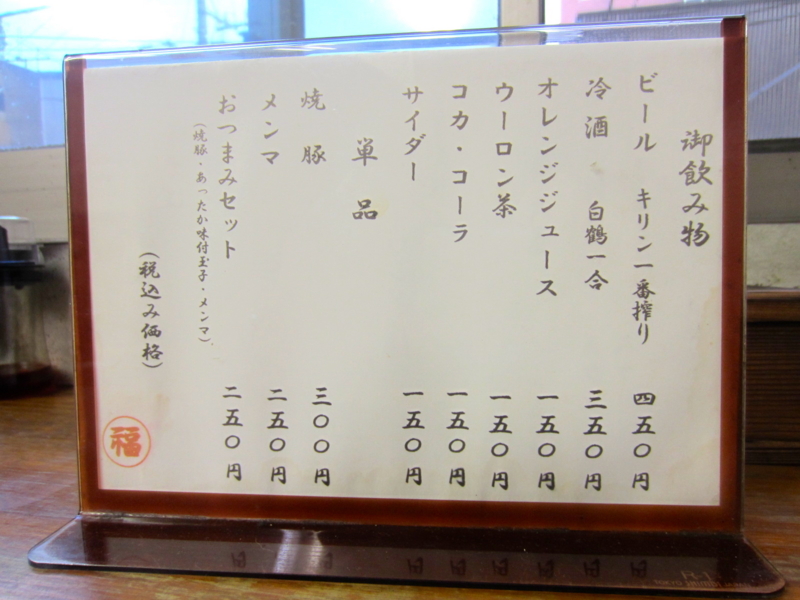 御飲み物
ビール キリン一番搾り 四五〇円
冷酒 白鶴一合 三五〇円
オレンジジュース 一五〇円
ウーロン茶 一五〇円
コカ・コーラ 一五〇円
サイダー 一五〇円
単品
焼豚 三〇〇円
メンマ 二五〇円
おつまみセット 二五〇円
(焼豚・あったか味付玉子・メンマ)
(税込み価格)
福